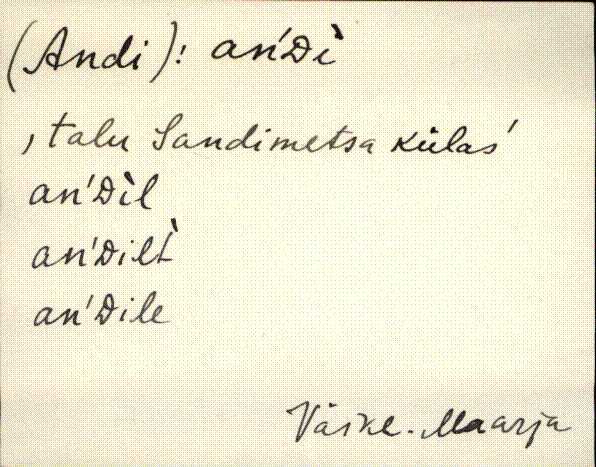 (Andi): an'Dì
, talu Sandimetsa külas'
an'Dìl
an'Dilt̀
an'Dile
Väike-Maarja